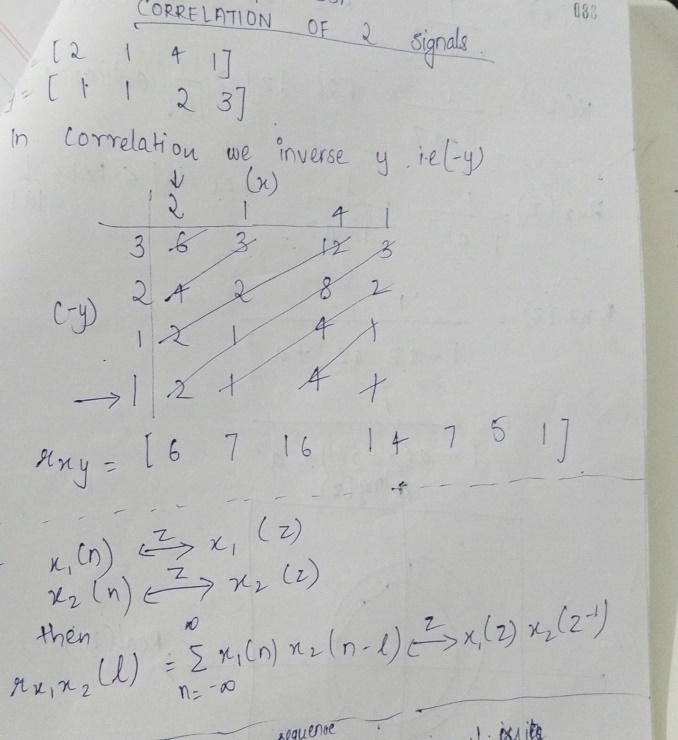 083
CORRELATION OF 2 signals.
= [2 1 4 1]
y = [1 1 2 3]
In Correlation we inverse y i.e(-y)
↓ (x)
2 1 4 1
3 6 3 12 3
(-y) 2 4 2 8 2
1 2 1 4 1
→ 1 2 1 4 1
rxy = [6 7 16 14 7 5 1]
x₁(n) ⟷ᶻ x₁(z)
x₂(n) ⟷ᶻ x₂(z)
then
rx₁x₂(l) = ∞ Σ n=-∞ x₁(n) x₂(n-l) ⟷ᶻ x₁(z) x₂(z⁻¹)
sequence